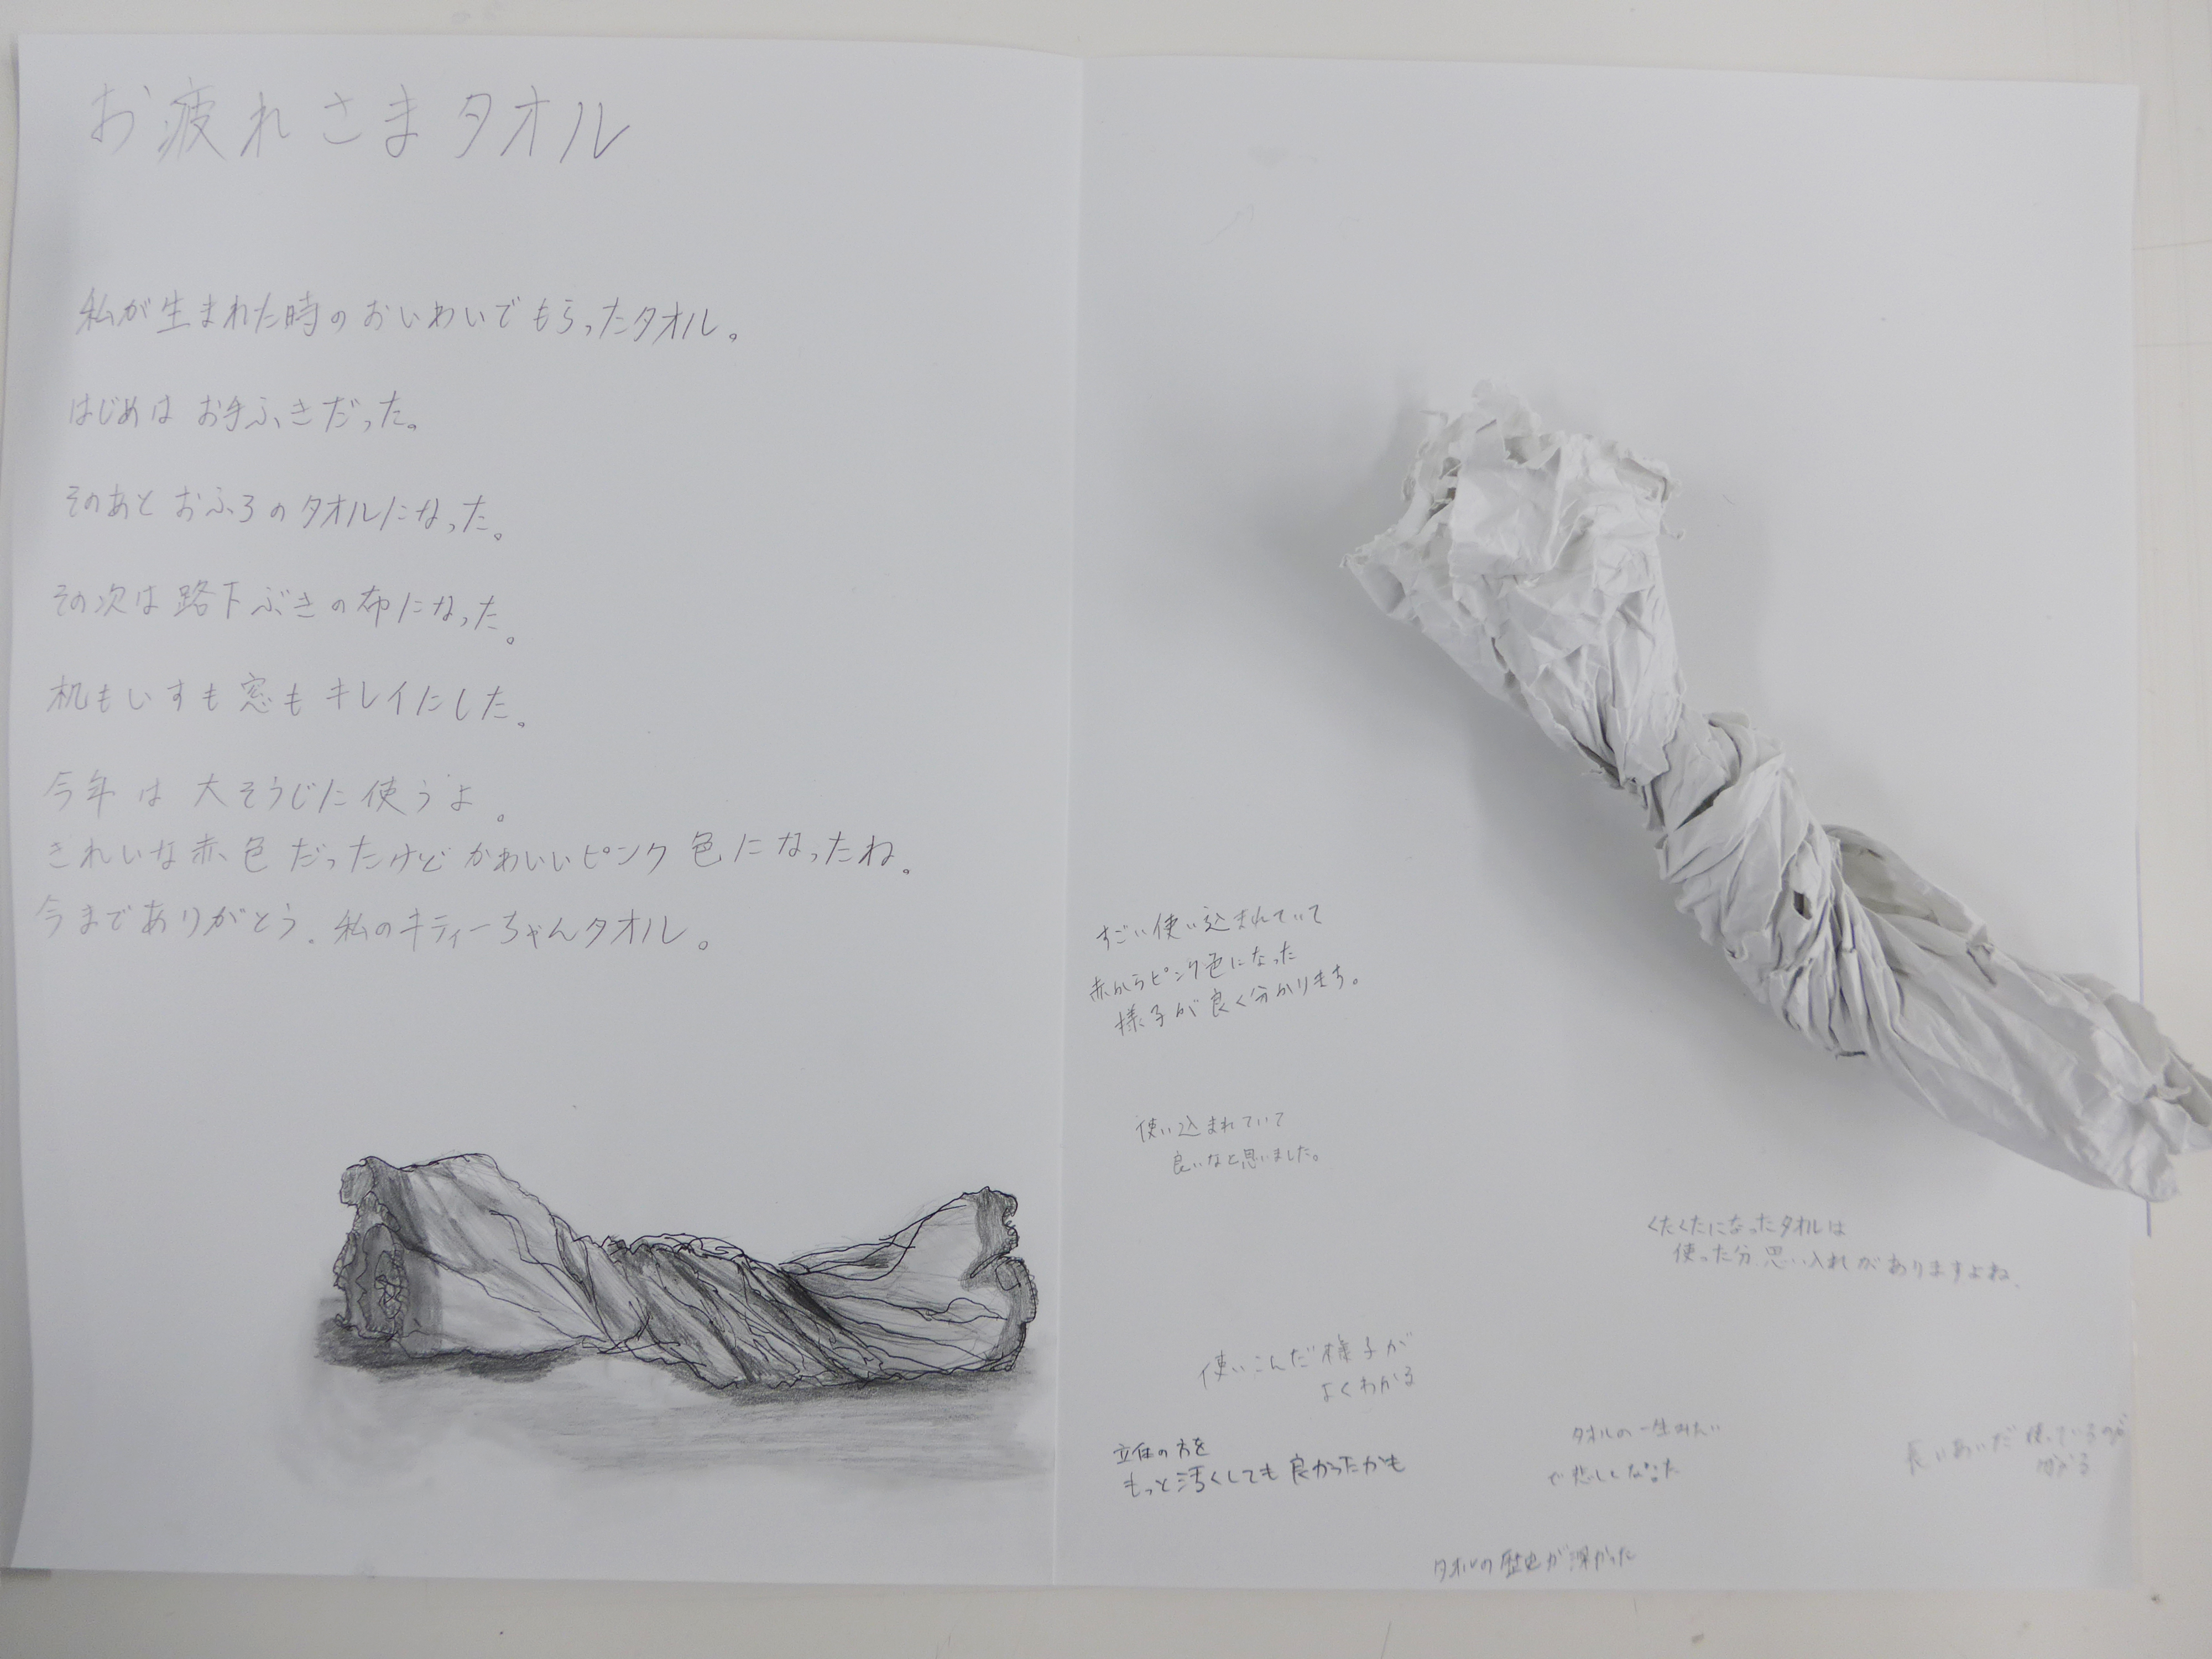 お疲れさまタオル
私が生まれた時のおいわいでもらったタオル。
はじめはお手ふきだった。
そのあとおふろのタオルになった。
その次は路下ぶきの布になった。
机もいすも窓もキレイにした。
今年は大そうじに使うよ。
きれいな赤色だったけどかわいいピンク色になったね。
今までありがとう。私のキティーちゃんタオル。
すごい使い込まれていて
赤からピンク色になった
様子が良く分かります。
使い込まれていて
良いなと思いました。
くたくたになったタオルは
使った分、思い入れがありますよね。
使いこんだ様子が
よくわかる
立体の方を
もっと汚くしても良かったかも
タオルの一生みたい
で悲しくなった
長いあいだ使っているのが
分かる
タオルの歴史が深かった